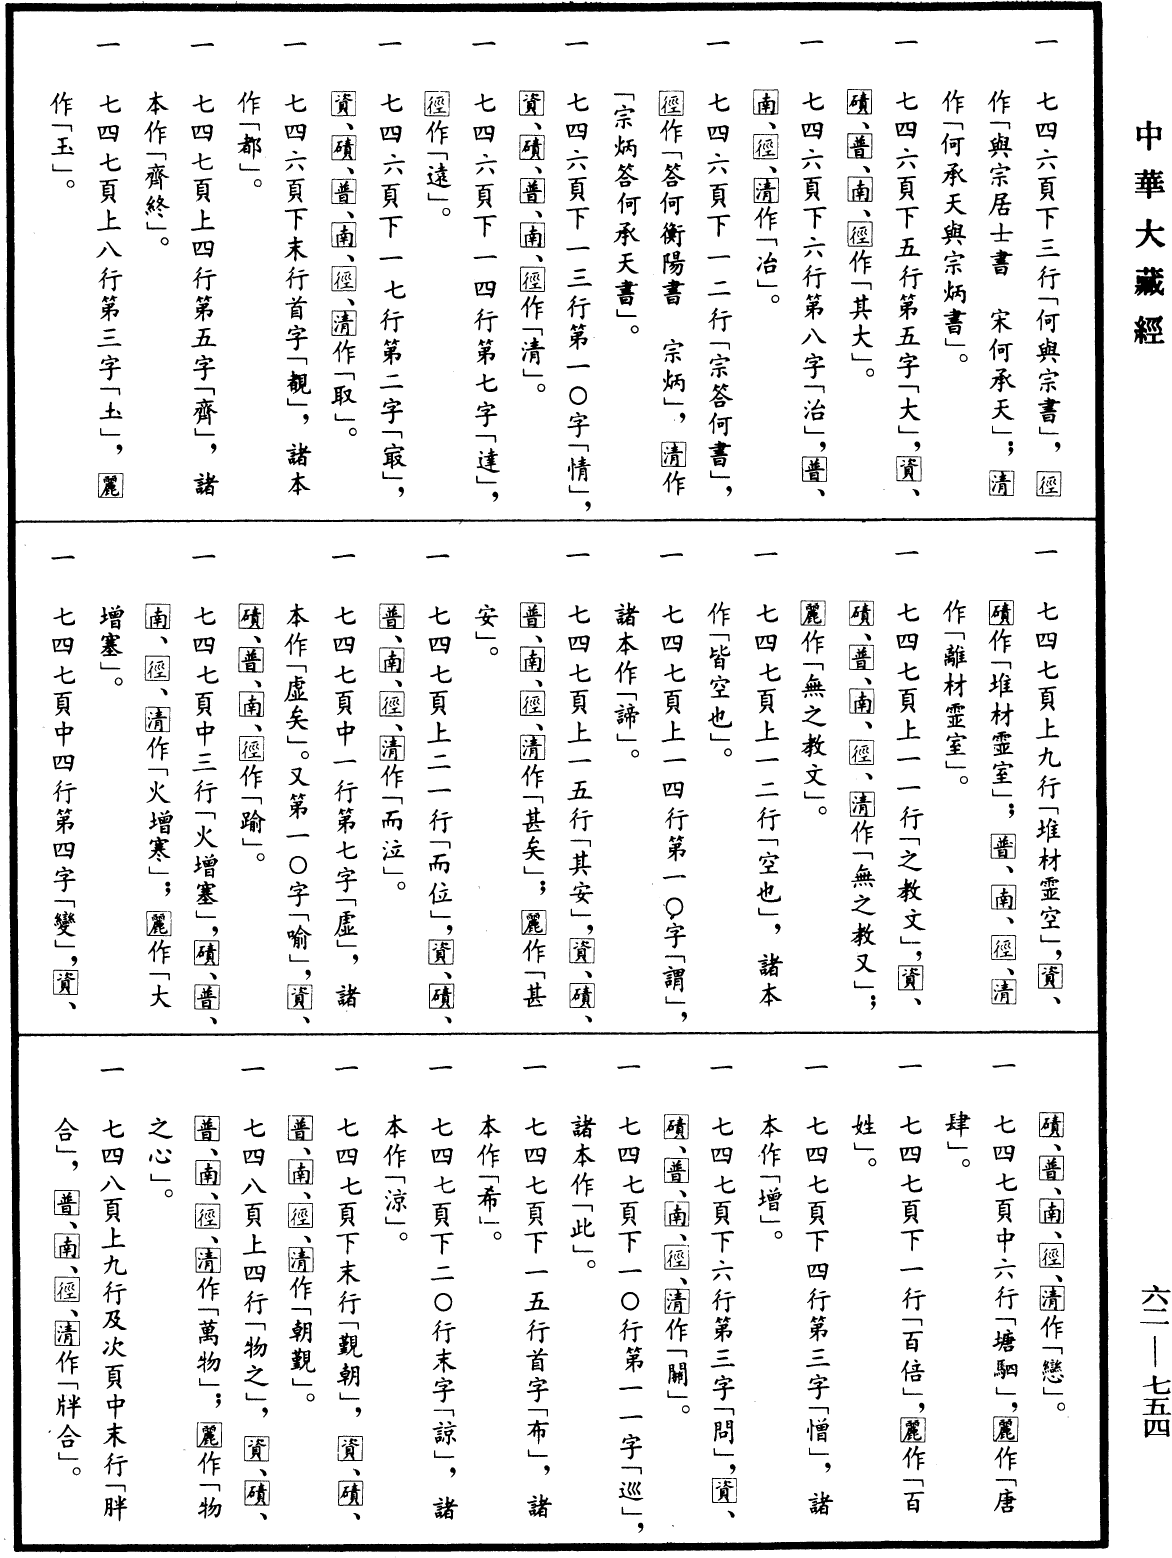 中華大藏經
一　七四六頁下三行「何與宗書」，徑
作「與宗居士書　宋何承天」；清
作「何承天與宗炳書」。
一　七四六頁下五行第五字「大」，資、
磧、普、南、徑作「其大」。
一　七四六頁下六行第八字「治」，普、
南、徑、清作「冶」。
一　七四六頁下一二行「宗答何書」，
徑作「答何衡陽書　宗炳」，清作
「宗炳答何承天書」。
一　七四六頁下一三行第一〇字「情」，
資、磧、普、南、徑作「清」。
一　七四六頁下一四行第七字「達」，
徑作「遠」。
一　七四六頁下一七行第二字「㝡」，
資、磧、普、南、徑、清作「取」。
一　七四六頁下末行首字「覩」，諸本
作「都」。
一　七四七頁上四行第五字「齊」，諸
本作「齊終」。
一　七四七頁上八行第三字「土」，麗
作「玉」。
一　七四七頁上九行「堆材靈空」，資、
磧作「堆材靈室」；普、南、徑、清
作「離材靈室」。
一　七四七頁上一一行「之教文」，資、
磧、普、南、徑、清作「無之教又」；
麗作「無之教文」。
一　七四七頁上一二行「空也」，諸本
作「皆空也」。
一　七四七頁上一四行第一〇字「謂」，
諸本作「諦」。
一　七四七頁上一五行「其安」，資、磧、
普、南、徑、清作「甚矣」；麗作「甚
安」。
一　七四七頁上二一行「而位」，資、磧、
普、南、徑、清作「而泣」。
一　七四七頁中一行第七字「虛」，諸
本作「虛矣」。又第一〇字「喻」，資、
磧、普、南、徑作「踰」。
一　七四七頁中三行「火增塞」，磧、普、
南、徑、清作「火增寒」；麗作「大
增塞」。
一　七四七頁中四行第四字「變」，資、
磧、普、南、徑、清作「戀」。
一　七四七頁中六行「塘駟」，麗作「唐
肆」。
一　七四七頁下一行「百倍」，麗作「百
姓」。
一　七四七頁下四行第三字「憎」，諸
本作「增」。
一　七四七頁下六行第三字「問」，資、
磧、普、南、徑、清作「闢」。
一　七四七頁下一〇行第一一字「巡」，
諸本作「此」。
一　七四七頁下一五行首字「布」，諸
本作「希」。
一　七四七頁下二〇行末字「諒」，諸
本作「涼」。
一　七四七頁下末行「覲朝」，資、磧、
普、南、徑、清作「朝覲」。
一　七四八頁上四行「物之」，資、磧、
普、南、徑、清作「萬物」；麗作「物
之心」。
一　七四八頁上九行及次頁中末行「胖
合」，普、南、徑、清作「牉合」。
六二—七五四